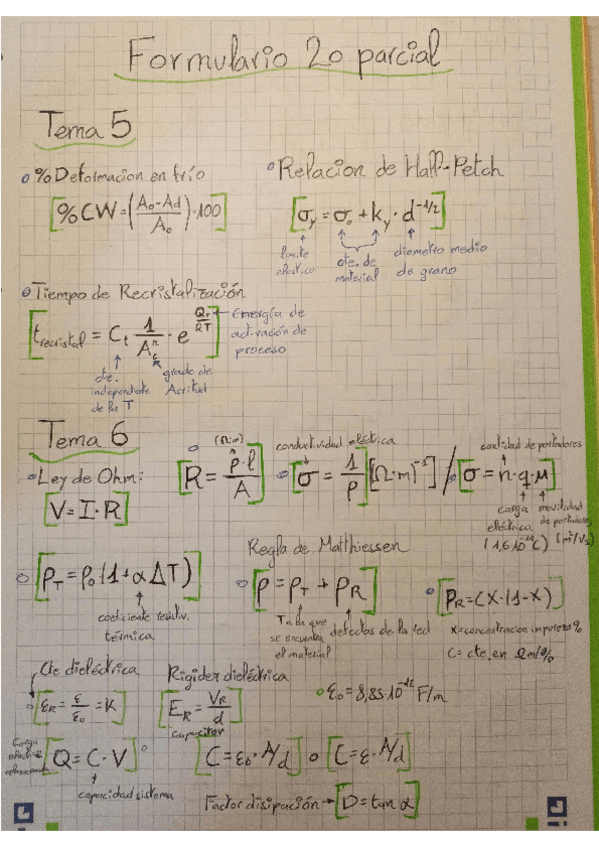 Formulario 2o parcial
Tema 5
%Deformacion en frío
[%CW=(Ao-Ad/Ao)·100]
Relacion de Hall-Petch
[σy = σo + ky · d^-1/2]
límite elástico
cte. de material
diametro medio de grano
Tiempo de Recristalización
[t recristal = Ct 1/Ac^n · e^Qr/RT]
Energía de activación de proceso
cte. independiente de la T
grado de Acritud
Tema 6
Ley de Ohm:
[V=I·R]
(Ω·m)
[R = ρ·l/A]
conductividad eléctrica
[σ = 1/ρ] [Ω·m]^-1 /
cantidad de portadores
[σ = n·q·μ]
carga eléctrica
movilidad de portadores
(m²/V·s)
[ρT = ρo(1+αΔT)]
coeficiente resistiv. térmica
Regla de Matthiessen
[ρ = ρT + ρR]
T a la que se encuentra el material
defectos de la red
[ρR=CX·(1-X)]
X=concentracion impureza%
C= cte. en Ωm/%
Cte dieléctrica
[εR = ε/εo = K]
Rigidez dieléctrica
[ER = VR/d]
capacitor
εo=8,85·10^-12 F/m
Carga
[Q = C·V]
capacidad sistema
[C=εo·A/d] o [C=ε·A/d]
Factor disipación → [D=tan α]